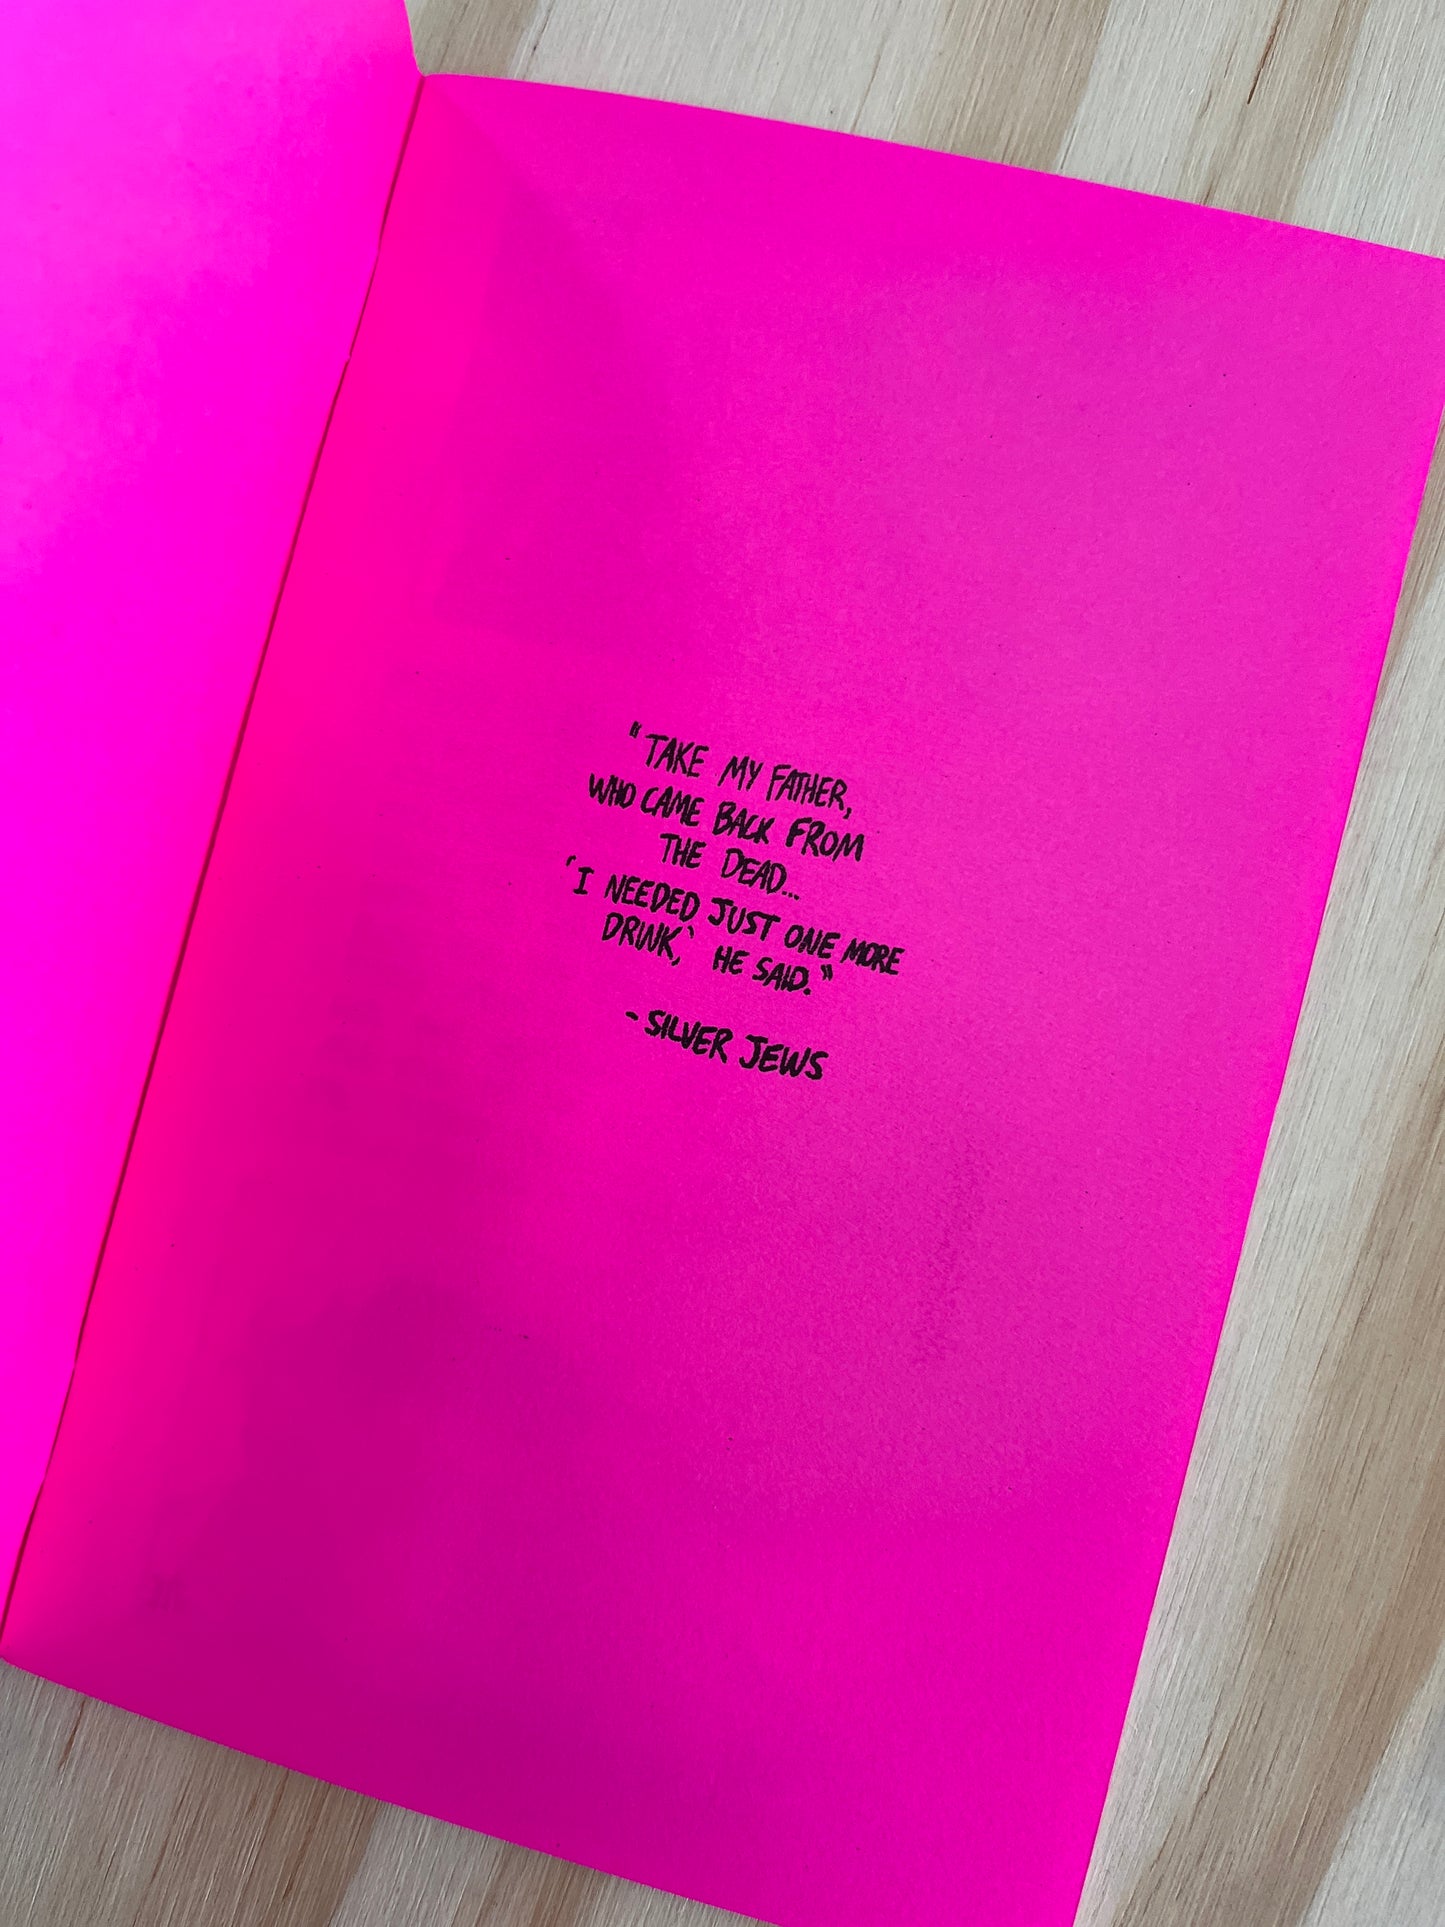 "TAKE MY FATHER,
WHO CAME BACK FROM
THE DEAD...
'I NEEDED JUST ONE MORE
DRINK,' HE SAID."
- SILVER JEWS